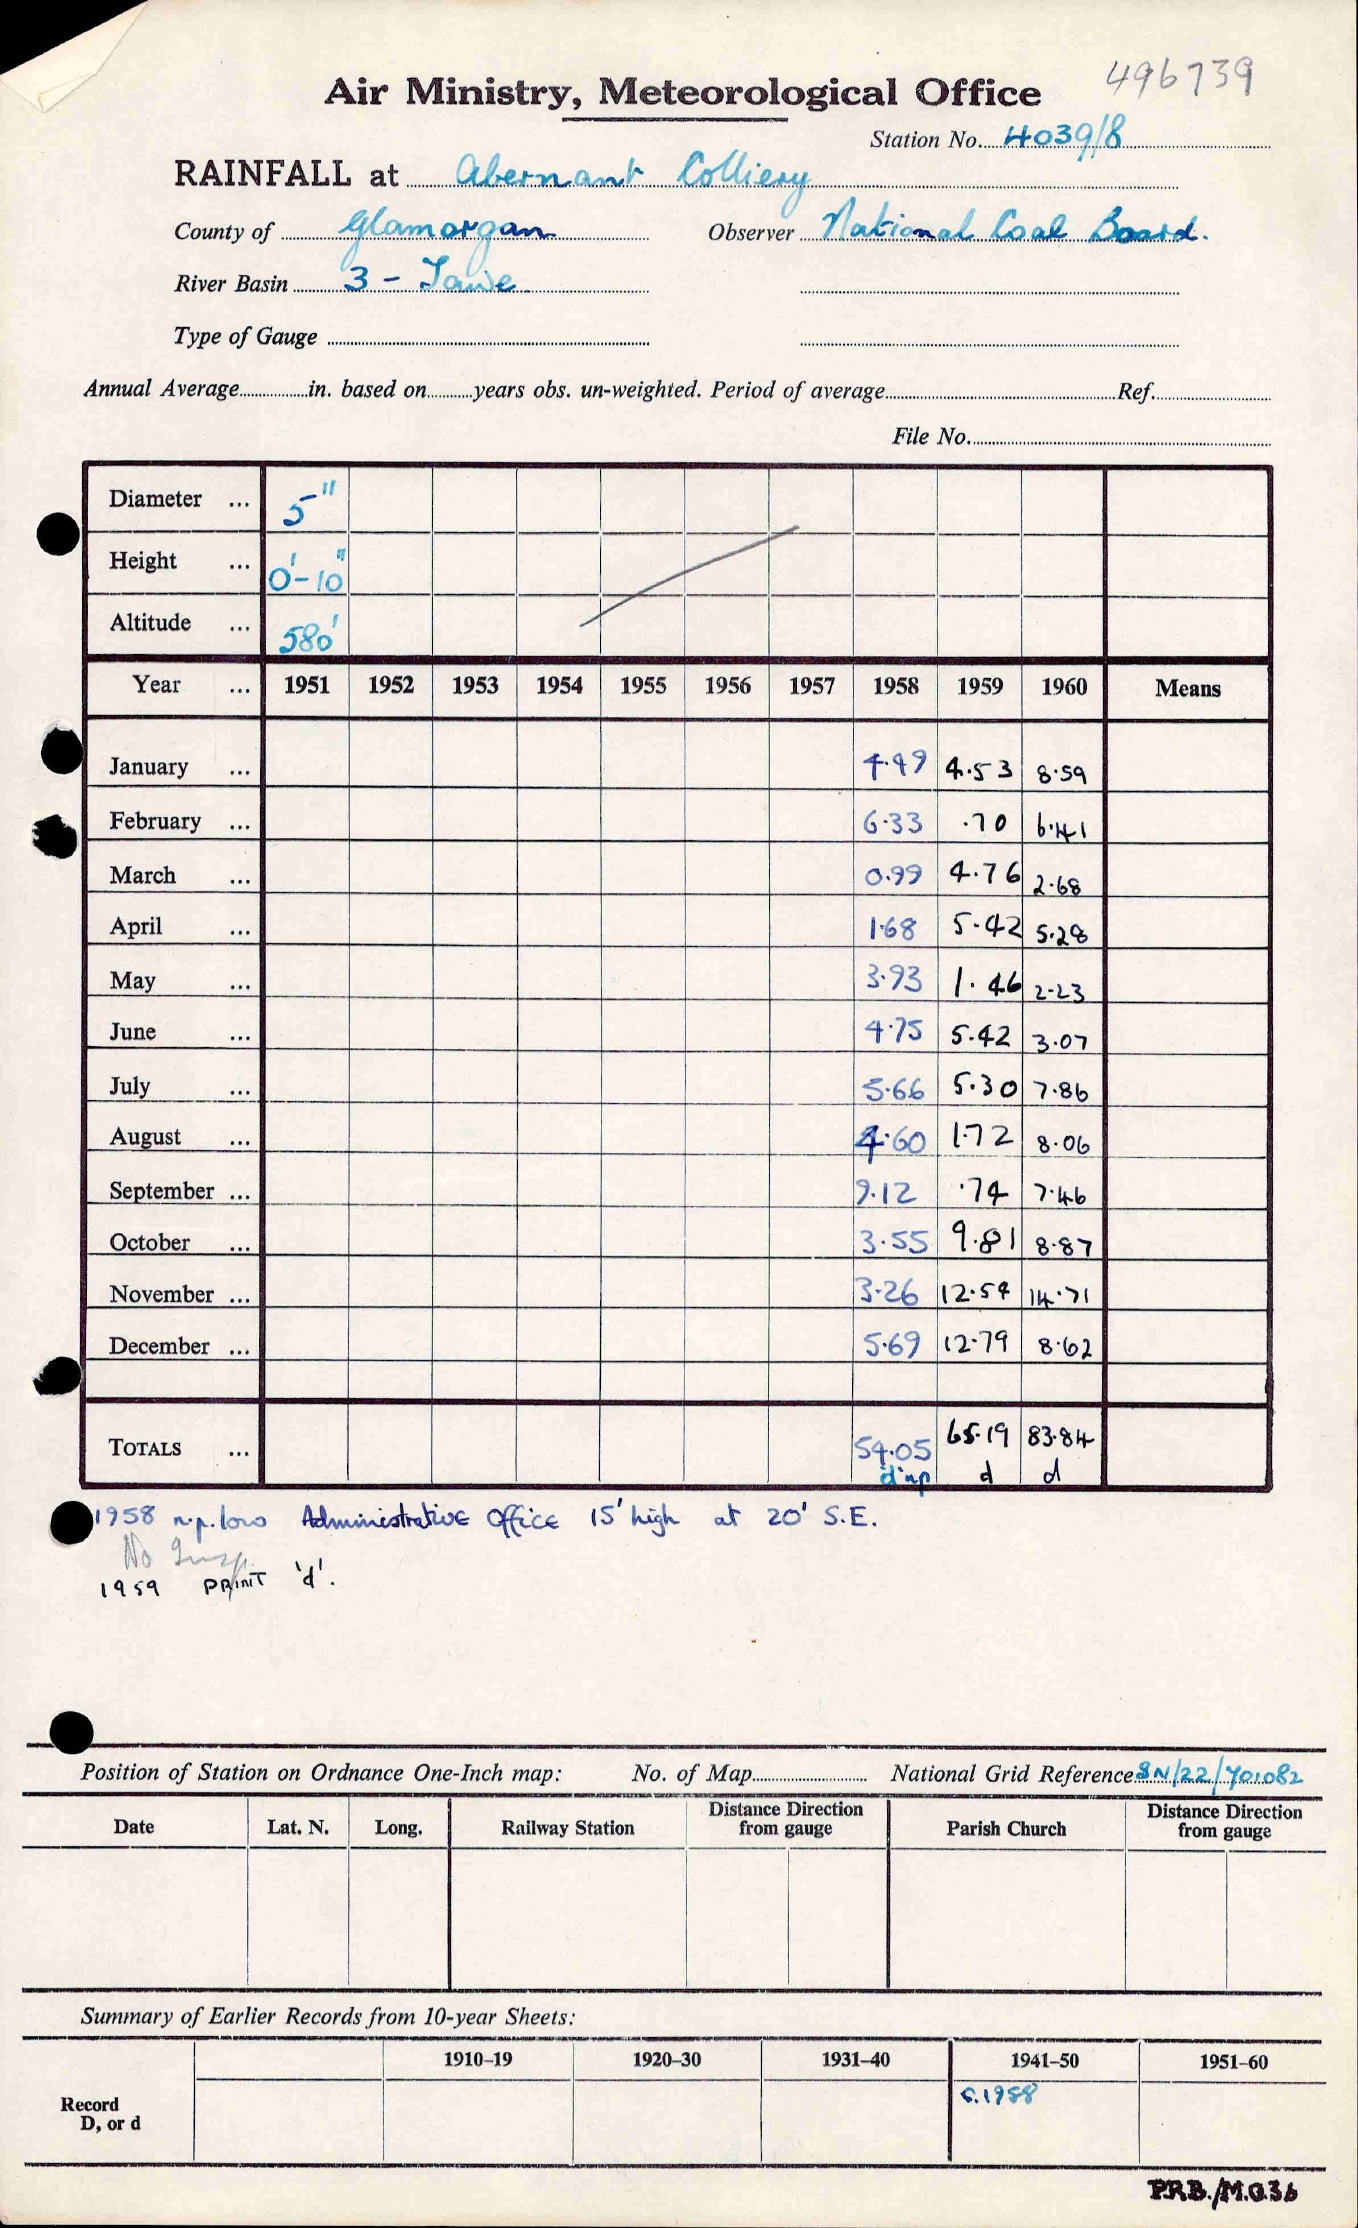 496739
Air Ministry, Meteorological Office
Station No. 4039/8
RAINFALL at Abernant Colliery
County of Glamorgan Observer National Coal Board.
River Basin 3 - Tawe
Type of Gauge
Annual Average in. based on years obs. un-weighted. Period of average Ref.
File No.
Diameter ... 5"
Height ... 0'-10"
Altitude ... 580'
Year ... 1951 1952 1953 1954 1955 1956 1957 1958 1959 1960 Means
January ... 4.49 4.53 8.59
February ... 6.33 .70 6.41
March ... 0.99 4.76 2.68
April ... 1.68 5.42 5.28
May ... 3.93 1.46 2.23
June ... 4.75 5.42 3.07
July ... 5.66 5.30 7.86
August ... 4.60 1.72 8.06
September ... 9.12 .74 7.46
October ... 3.55 9.81 8.87
November ... 3.26 12.54 14.71
December ... 5.69 12.79 8.62
TOTALS ... 54.05 65.19 83.84
d np d d
1958 n.p. low Administrative Office 15' high at 20' S.E.
No Insp.
1959 PRINT 'd'.
Position of Station on Ordnance One-Inch map: No. of Map National Grid Reference SN/22/701082
Date Lat. N. Long. Railway Station Distance Direction from gauge Parish Church Distance Direction from gauge
Summary of Earlier Records from 10-year Sheets:
1910–19 1920–30 1931–40 1941–50 1951–60
Record D, or d c.1958
P.R.B./M.O.36